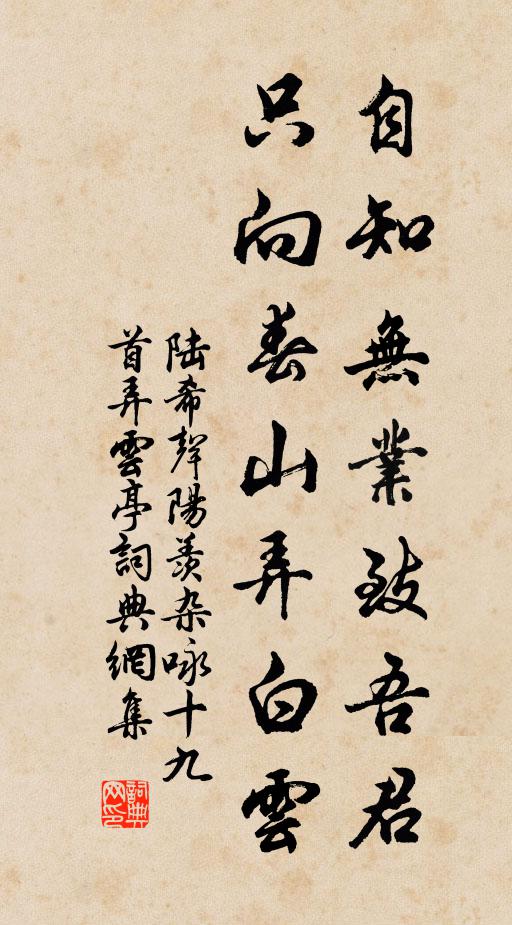 自知無業致吾君
只向春山弄白雲
陸希聲陽羨杂咏十九
首弄雲亭詞典網集
詞典
网印